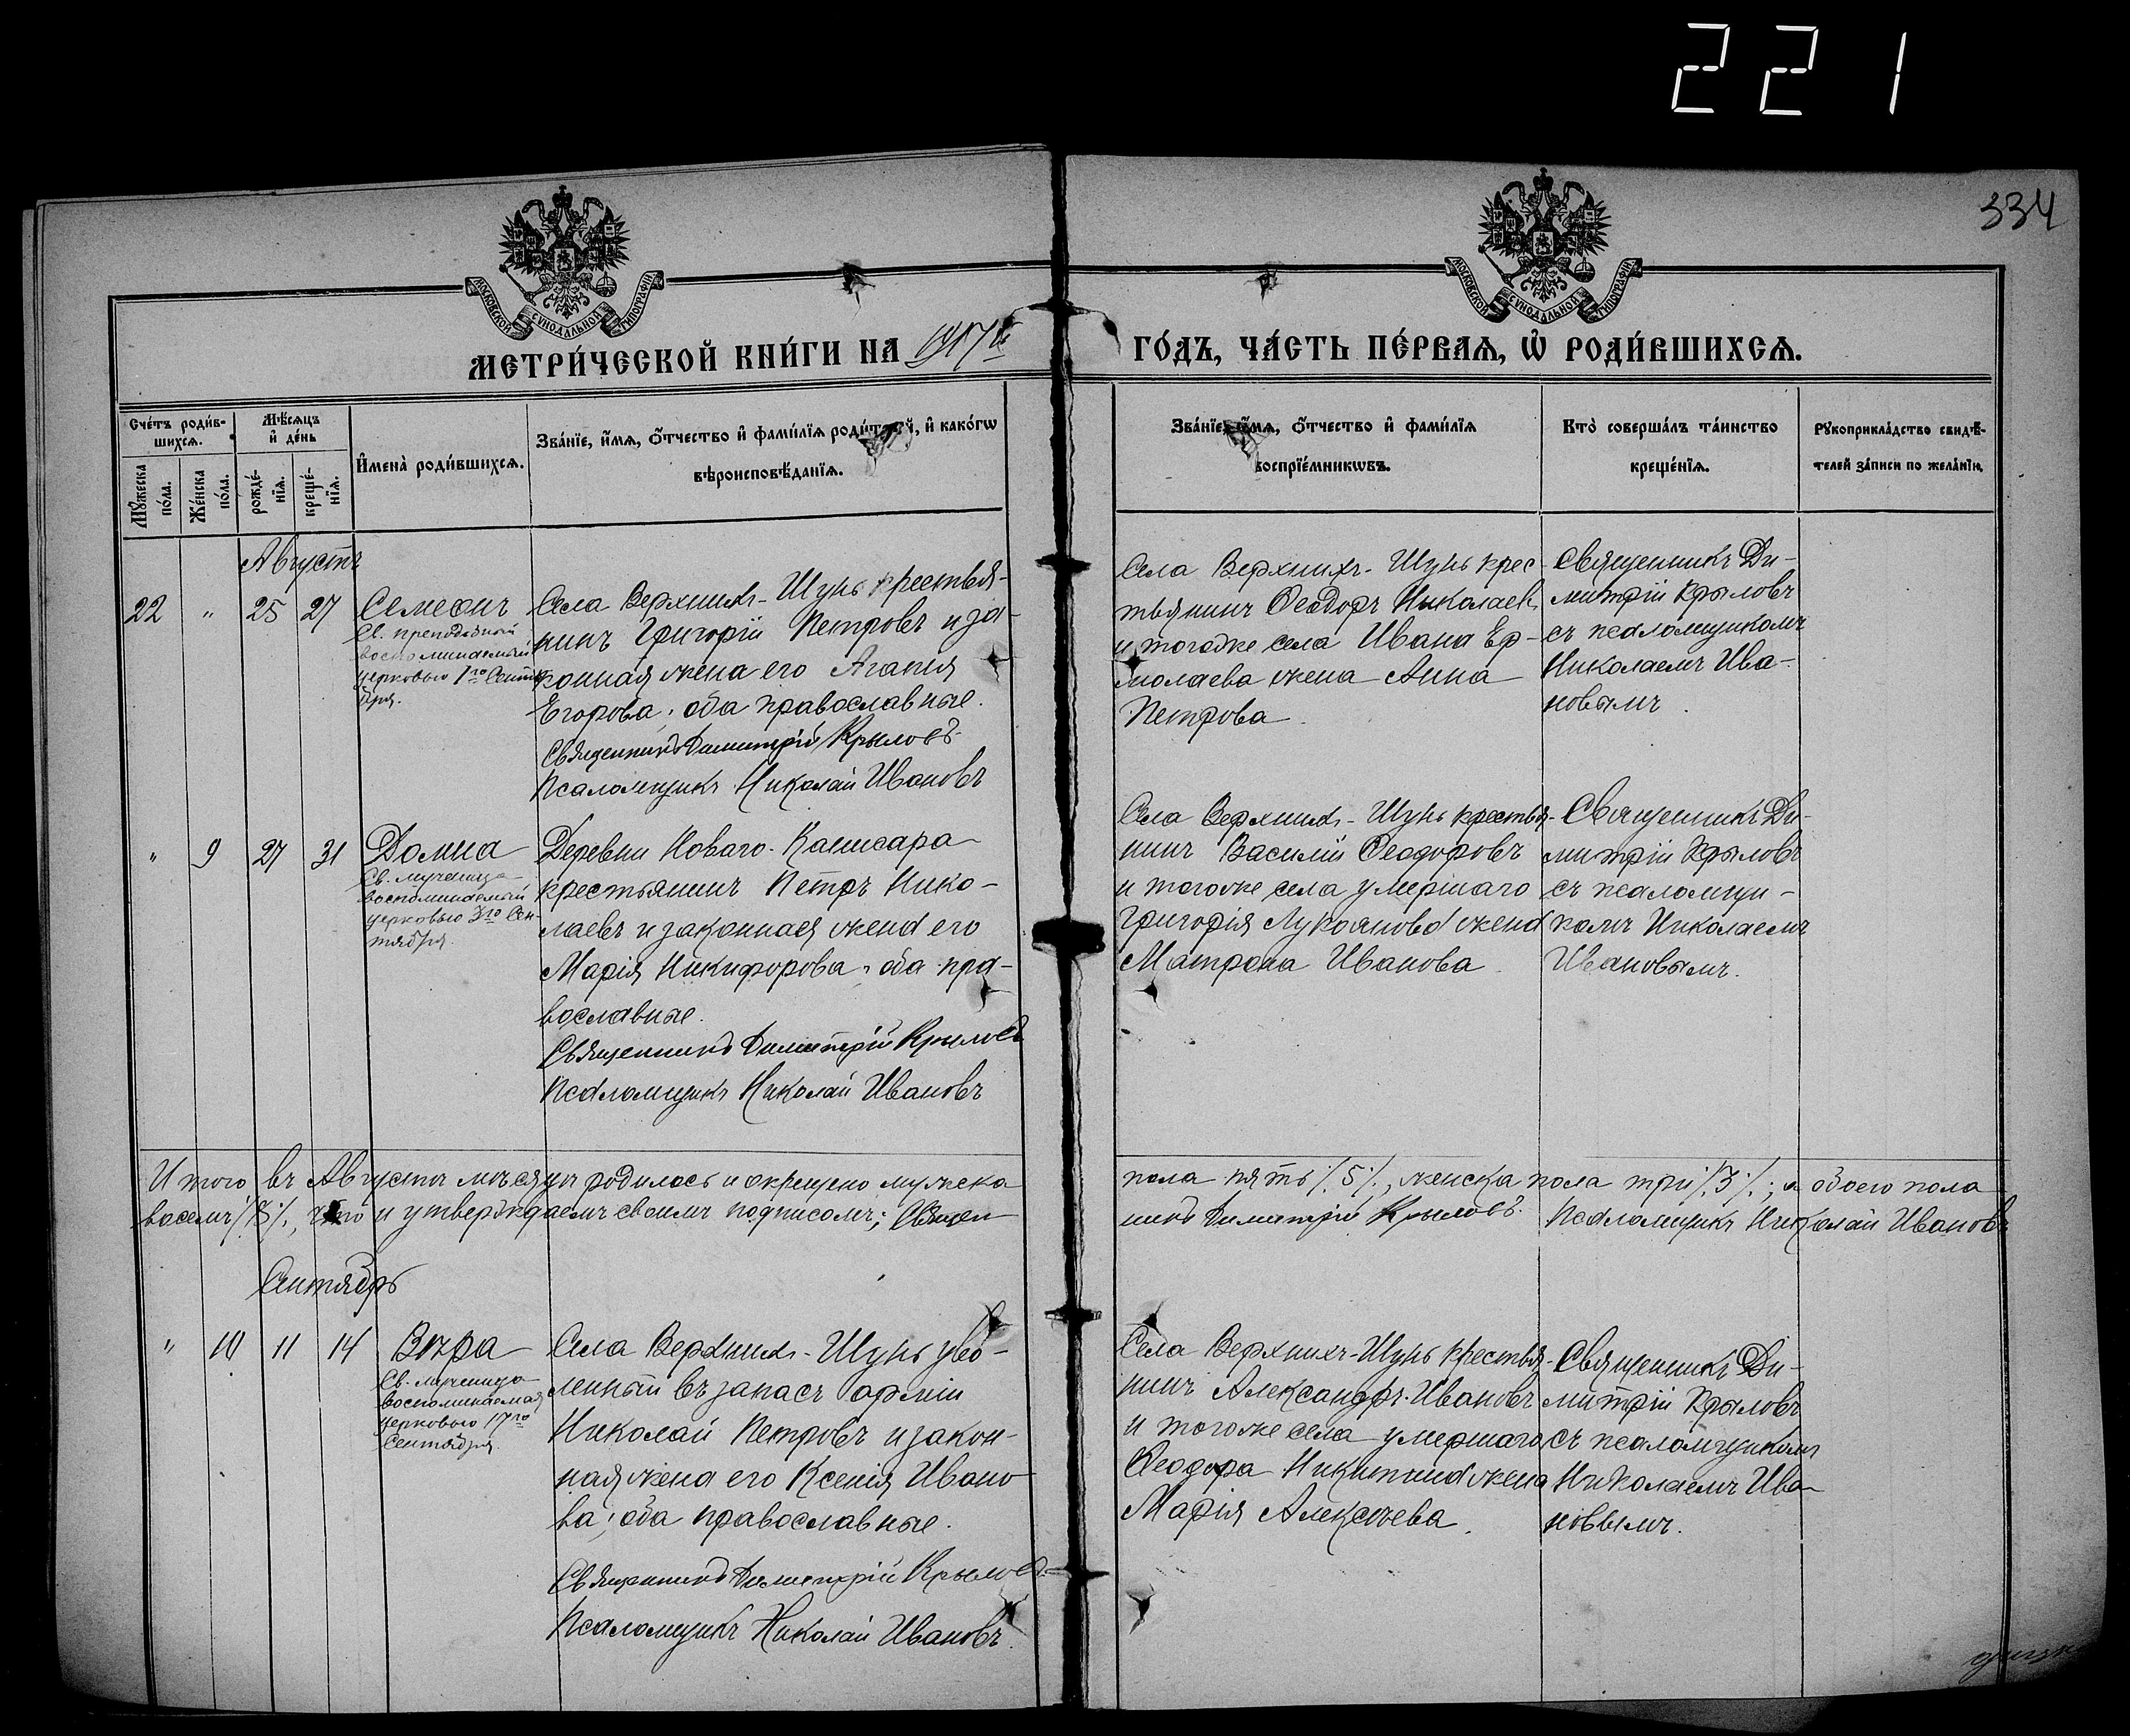 221
334
МОСКОВСКОЙ СѴНОДАЛЬНОЙ ТИПОГРАФІИ
МОСКОВСКОЙ СѴНОДАЛЬНОЙ ТИПОГРАФІИ
МЕТРИ́ЧЕСКОЙ КНИ́ГИ НА 1917й
ГО́ДЪ, ЧА́СТЬ ПЕ́РВАѦ, Ѡ҆ РОДИ́ВШИХСѦ.
Сче́тъ роди́в-
шихсѧ.
Мѣ́сѧцъ
и҆ де́нь
Мꙋ́жеска
по́ла.
Же́нска
по́ла.
рожде́-
нїѧ.
креще́-
нїѧ.
И҆мена̀ роди́вшихсѧ.
Зва́нїе, и҆́мѧ, ѻ҆́тчество и҆ фами́лїѧ роди́телей, и҆ како́гѡ
вѣроисповѣ́данїѧ.
Зва́нїе, и҆́мѧ, ѻ҆́тчество и҆ фами́лїѧ
воспрїе́мникѡвъ.
Кто̀ соверша́лъ та́инство
креще́нїѧ.
Рꙋкоприкла́дство свидѣ́-
телей за́писи по жела́нїю.
Августъ
22 " 25 27
Симеонъ
Св. преподобный
воспоминаемый
церковью 1го Сентя
бря.
Села Верхнихъ-Шунь крестья-
нинъ Григорій Петровъ и за-
конная жена его Агапія
Егорова, оба православные.
Священникъ Димитрій Крыловъ
Псаломщикъ Николай Ивановъ
Села Верхнихъ-Шунь крес-
тьянинъ Ѳеодоръ Николаевъ
и тогоже села Ивана Ер-
молаева жена Анна
Петрова.
Священникъ Ди-
митрій Крыловъ
съ псаломщикомъ
Николаемъ Ива-
новымъ.
" 9 27 31
Домна
Св. мученица
воспоминаемый
церковью 3го Сен-
тября.
Деревни Новаго-Канисара
крестьянинъ Петръ Нико-
лаевъ и законная жена его
Марія Никифорова, оба пра-
вославные.
Священникъ Димитрій Крыловъ
Псаломщикъ Николай Ивановъ
Села Верхнихъ-Шунь крестья-
нинъ Василій Ѳеодоровъ
и тогоже села умершаго
Григорія Лукоянова жена
Матрона Иванова.
Священникъ Ди-
митрій Крыловъ
съ псаломщи-
комъ Николаемъ
Ивановымъ.
Итого въ Августѣ мѣсяцѣ родилось и окрещено мужеска
пола пять ⁒5⁒, женска пола три ⁒3⁒; а обоего пола
восемь ⁒8⁒, что и утверждаемъ своимъ подписомъ; Священ
никъ Димитрій Крыловъ. Псаломщикъ Николай Ивановъ
Сентябрь
" 10 11 14
Вѣра
Св. мученица
воспоминаемая
церковью 17го
Сентября.
Села Верхнихъ-Шунь уво-
ленный въ запасъ арміи
Николай Петровъ и закон-
ная жена его Ксенія Ивано
ва, оба православные.
Священникъ Димитрій Крыловъ
Псаломщикъ Николай Ивановъ.
Села Верхнихъ-Шунь крестья-
нинъ Александръ Ивановъ
и тогоже села умершаго
Ѳеодора Никитина жена
Марія Алексѣева.
Священникъ Ди-
митрій Крыловъ
съ псаломщикомъ
Николаемъ Ива-
новымъ.